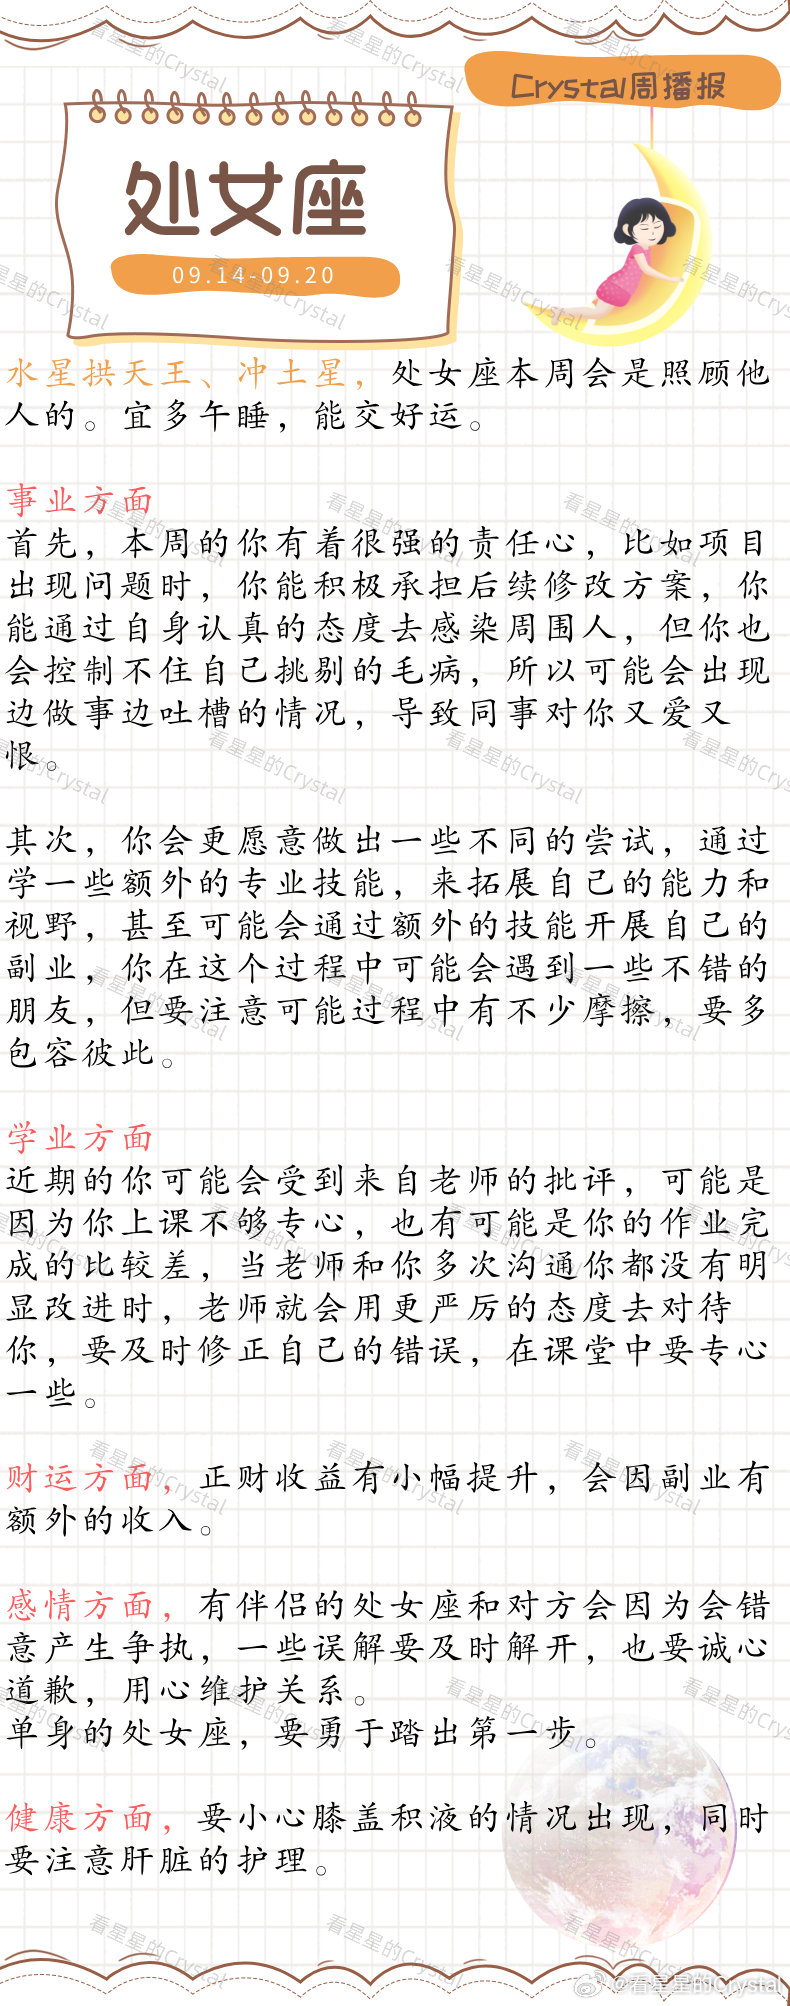 Crystal周播报
处女座
09.14-09.20
水星拱天王、冲土星，处女座本周会是照顾他
人的。宜多午睡，能交好运。
事业方面
首先，本周的你有着很强的责任心，比如项目
出现问题时，你能积极承担后续修改方案，你
能通过自身认真的态度去感染周围人，但你也
会控制不住自己挑剔的毛病，所以可能会出现
边做事边吐槽的情况，导致同事对你又爱又
恨。
其次，你会更愿意做出一些不同的尝试，通过
学一些额外的专业技能，来拓展自己的能力和
视野，甚至可能会通过额外的技能开展自己的
副业，你在这个过程中可能会遇到一些不错的
朋友，但要注意可能过程中有不少摩擦，要多
包容彼此。
学业方面
近期的你可能会受到来自老师的批评，可能是
因为你上课不够专心，也有可能是你的作业完
成的比较差，当老师和你多次沟通你都没有明
显改进时，老师就会用更严厉的态度去对待
你，要及时修正自己的错误，在课堂中要专心
一些。
财运方面，正财收益有小幅提升，会因副业有
额外的收入。
感情方面，有伴侣的处女座和对方会因为会错
意产生争执，一些误解要及时解开，也要诚心
道歉，用心维护关系。
单身的处女座，要勇于踏出第一步。
健康方面，要小心膝盖积液的情况出现，同时
要注意肝脏的护理。
@看星星的Crystal